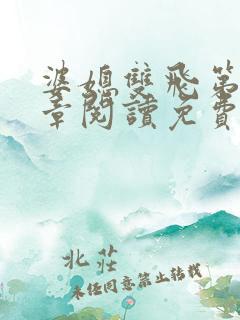 婆媳雙飛第
章閱讀免費
北莊
未经同意禁止转载